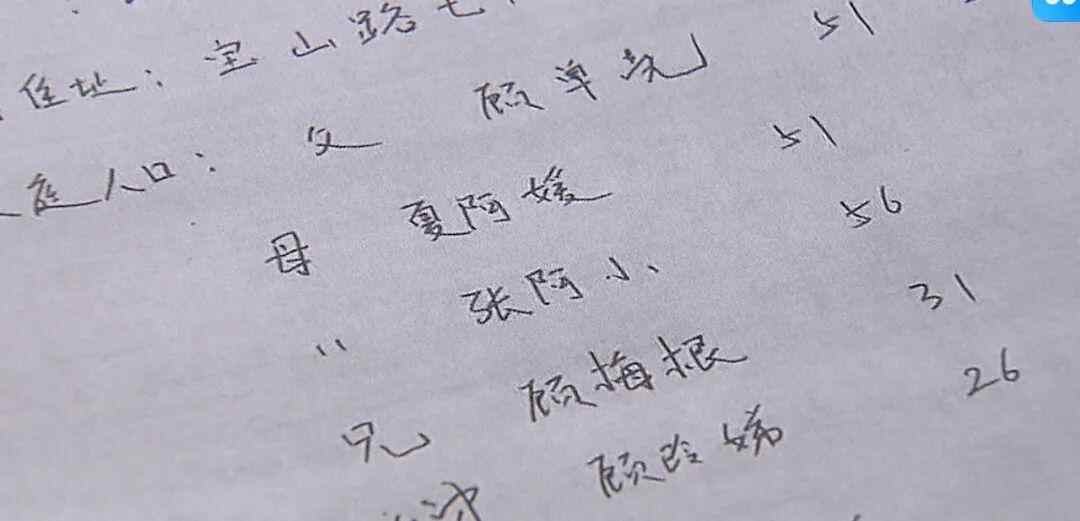 住址：宝山路七
庭人口：父 顾单先 51
母 夏阿媛 51
〃 张阿小 56
兄 顾梅根 31
顾玲娣 26